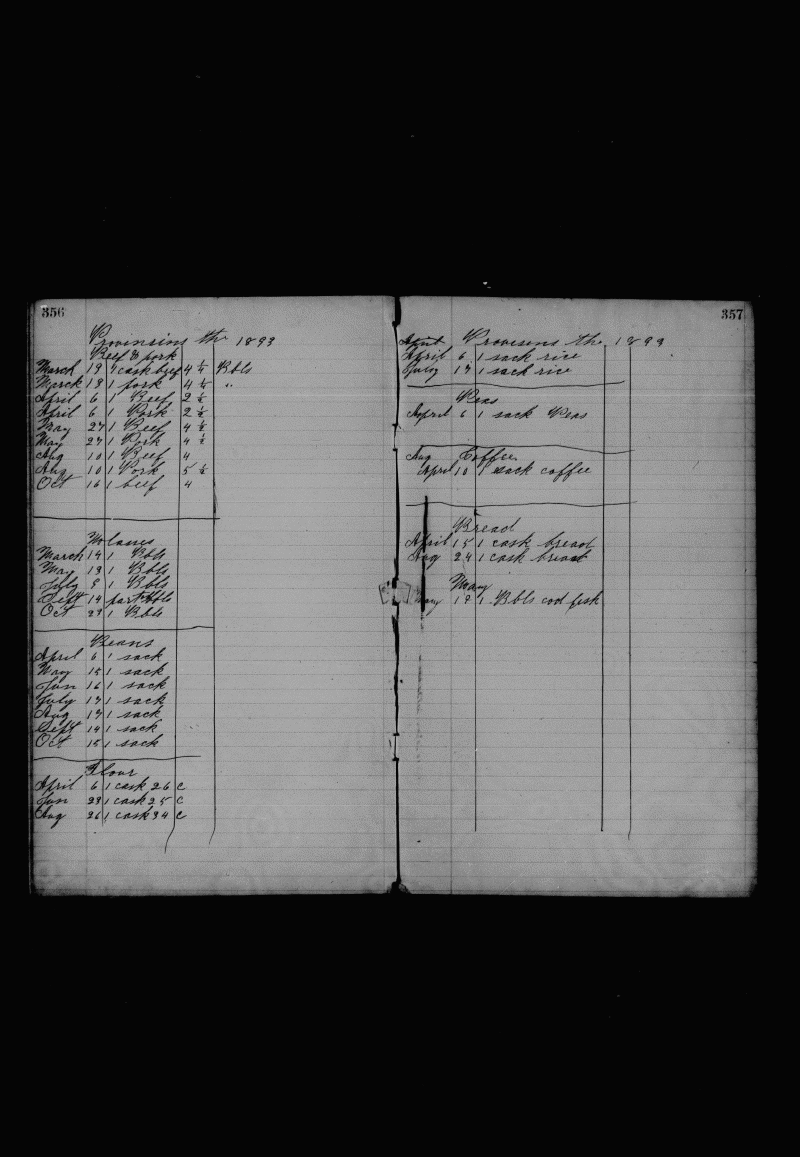 356
Provinsins th 1893
Beef & pork
March 19 1 cask beef 4 1/4 Bbls
March 18 1 pork 4 1/4 "
April 6 1 Beef 2 1/2
April 6 1 Pork 2 1/2
May 27 1 Beef 4 1/2
May 27 1 Pork 4 1/2
Aug 10 1 Beef 4
Aug 10 1 Pork 5 1/2
Oct 16 1 beef 4
Molasses
March 14 1 Bbls
May 19 1 Bbls
July 8 1 Bbls
Sept 14 part Bbls
Oct 29 1 Bbls
Beans
April 6 1 sack
May 15 1 sack
Jun 16 1 sack
July 17 1 sack
Aug 17 1 sack
Sept 14 1 sack
Oct 15 1 sack
Flour
April 6 1 cask 26 c
Jun 29 1 cask 25 c
Aug 26 1 cask 24 c
357
Provisons th 1893
April 6 1 sack rice
July 17 1 sack rice
Peas
April 6 1 sack Peas
Aug Coffee
April 10 1 sack coffee
Bread
April 15 1 cask bread
Aug 24 1 cask bread
May
May 19 1 Bbls cod fish